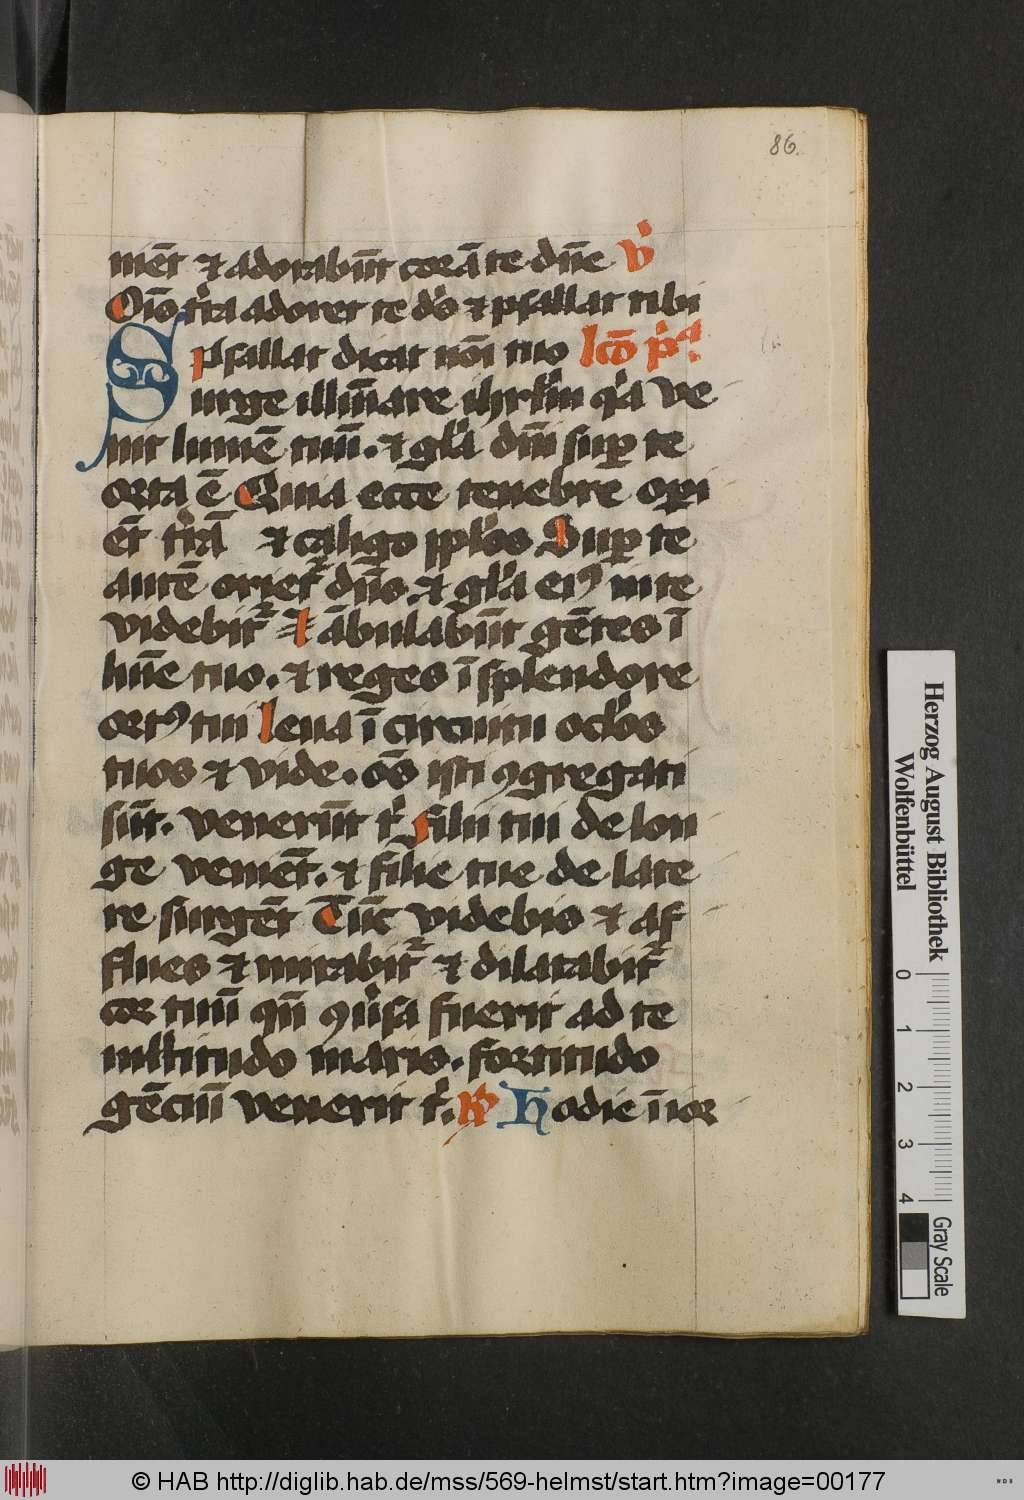 86.
niēt et adorabūt corā te dn̄e v̓
Oīs t̓ra adoret te ds̓ et psallat tibi
psallat dicat noī tuo lco̅ p̓ᵃ
Surge illūīare ihrl̓m q̓a ve
nit lumē tuū. et gl̓a dn̄i sup te
orta ē Quia ecce tenebre opi
ēt t̓rā et caligo ppl̓os Sup te
autē oriet᷑ dn̄s et gl̓a eiꝰ in te
videbit᷑ Et ābulabūt gētes ī
lūīe tuo. et reges ī splendore
ortꝰ tui Leua ī circuitu ocl̓os
tuos et vide. oēs isti ꝯgregati
sūt. venerūt t̓ filii tui de lon
ge veniēt. et filie tue de late
re surgēt Tūc videbis et af
flues et mirabit᷑ et dilatabit᷑
cor tuū qn̄ ꝯu̓sa fuerit ad te
ml̓titudo maris. fortitudo
gēciū venerit t̓. R Hodie ī ior
Herzog August Bibliothek
Wolfenbüttel
0 1 2 3 4
Gray Scale
© HAB http://diglib.hab.de/mss/569-helmst/start.htm?image=00177